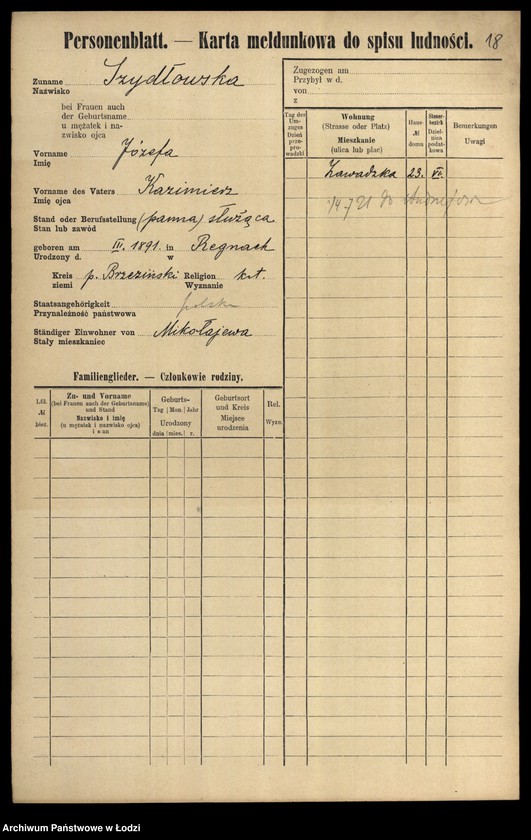 Personenblatt. — Karta meldunkowa do spisu ludności. 18
Zuname Szydłowska
Nazwisko
bei Frauen auch
der Geburtsname
u mężatek i na-
zwisko ojca
Vorname Józefa
Imię
Vorname des Vaters Kazimierz
Imię ojca
Stand oder Berufsstellung (panna) służąca
Stan lub zawód
geboren am III. 1891. in Regnach
Urodzony d. w
Kreis p. Brzeziński Religion kat.
ziemi Wyznanie
Staatsangehörigkeit polska
Przynależność państwowa
Ständiger Einwohner von Mikołajewa
Stały mieszkaniec
Familienglieder. — Członkowie rodziny.
Lfd. № bież.
Zu- und Vorname
(bei Frauen auch der Geburtsname)
und Stand
Nazwisko i imię
(u mężatek i nazwisko ojca)
i stan
Geburts-
Tag Mon. Jahr
Urodzony
dnia mies. r.
Geburtsort
und Kreis
Miejsce
urodzenia
Rel.
Wyzn.
Zugezogen am
Przybył w d.
von
z
Tag des
Um-
zuges
Dzień
prze-
prowadzki
Wohnung
(Strasse oder Platz)
Mieszkanie
(ulica lub plac)
Haus-
№
domu
Steuer-
bezirk
Dziel-
nica
podat-
kowa
Bemerkungen
Uwagi
Zawadzka 23. VII.
14.7 21 do
Archiwum Państwowe w Łodzi